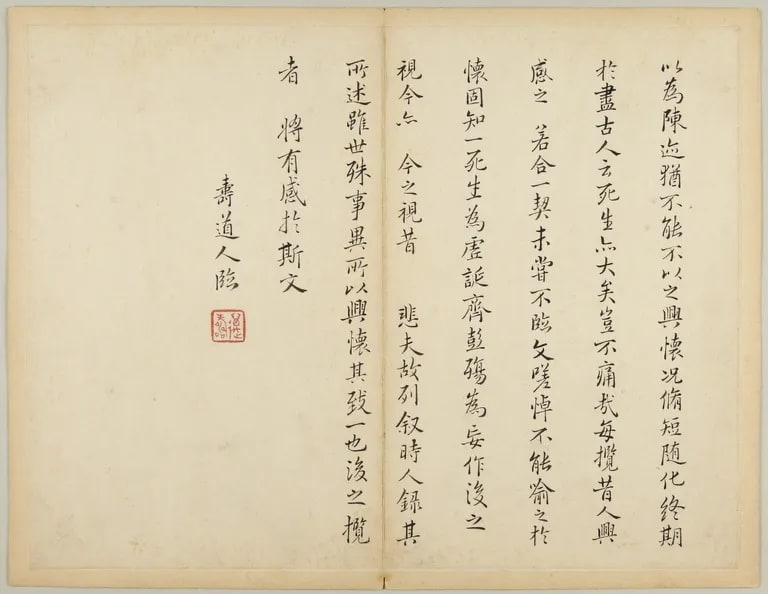 以為陳迹猶不能不以之興懷况脩短随化終期
於盡古人云死生亦大矣豈不痛哉每攬昔人興
感之 若合一契未嘗不臨文嗟悼不能喻之於
懷固知一死生為虛誕齊彭殤為妄作後之
視今亦 今之視昔 悲夫故列叙時人錄其
所述雖世殊事異所以興懷其致一也後之攬
者 將有感於斯文
壽道人臨